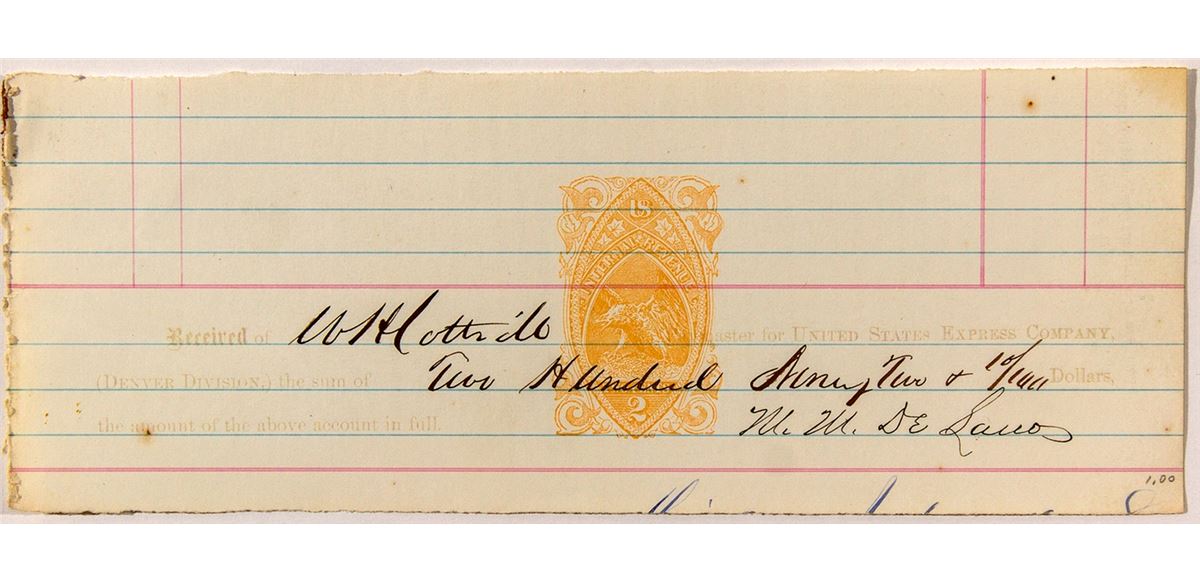 US
INTERNAL REVENUE
Received of W H Cottrill master for UNITED STATES EXPRESS COMPANY,
(DENVER DIVISION,) the sum of Two Hundred Seventy Two & 10/100 Dollars,
2
the amount of the above account in full. M. M. DE
1.00